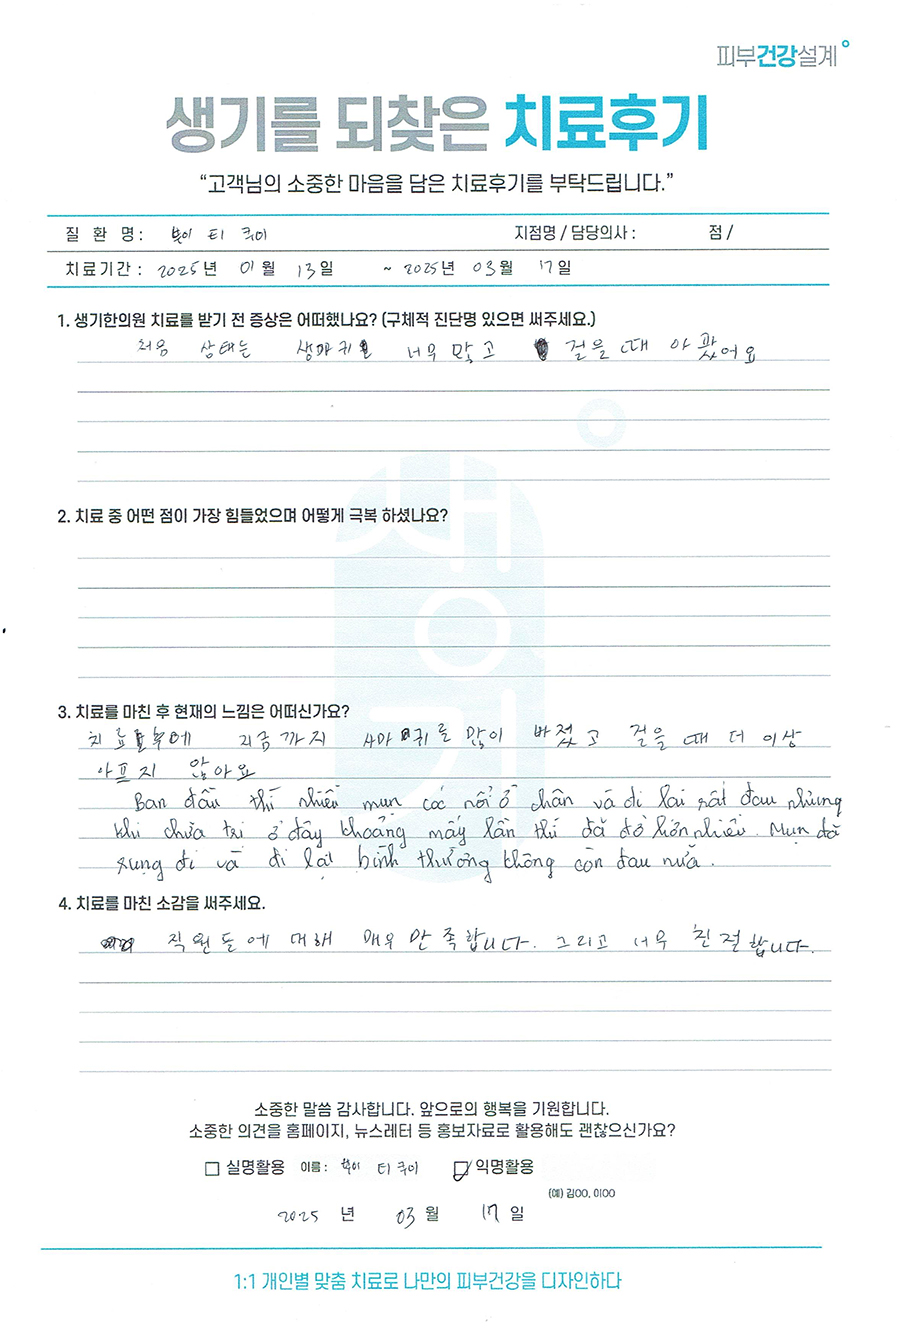 피부건강설계
생기를 되찾은 치료후기
“고객님의 소중한 마음을 담은 치료후기를 부탁드립니다.”
질 환 명 : 붜이 티 퀴이 지점명 / 담당의사 : 점 /
치료기간 : 2025년 01월 13일 ~ 2025년 03월 17일
1. 생기한의원 치료를 받기 전 증상은 어떠했나요? (구체적 진단명 있으면 써주세요.)
처음 상태는 생마귀 너무 많고 걸을 때 아팠어요
2. 치료 중 어떤 점이 가장 힘들었으며 어떻게 극복 하셨나요?
3. 치료를 마친 후 현재의 느낌은 어떠신가요?
치료 후에 지금 까지 사마귀를 많이 빠졌고 걸을 때 더 이상
아프지 않아요
Ban đầu thì nhiều mụn cóc nổi ở chân và đi lại rất đau nhưng
khi chữa trị ở đây khoảng mấy lần thì đã đỡ hơn nhiều. Mụn đã
rụng đi và đi lại bình thường không còn đau nữa.
4. 치료를 마친 소감을 써주세요.
직원들에 대해 매우 만족합니다. 그리고 너무 친절합니다.
소중한 말씀 감사합니다. 앞으로의 행복을 기원합니다.
소중한 의견을 홈페이지, 뉴스레터 등 홍보자료로 활용해도 괜찮으신가요?
실명활용 이름 : 붜이 티 퀴이 익명활용
(예) 김OO, 이OO
2025 년 03 월 17 일
1:1 개인별 맞춤 치료로 나만의 피부건강을 디자인하다